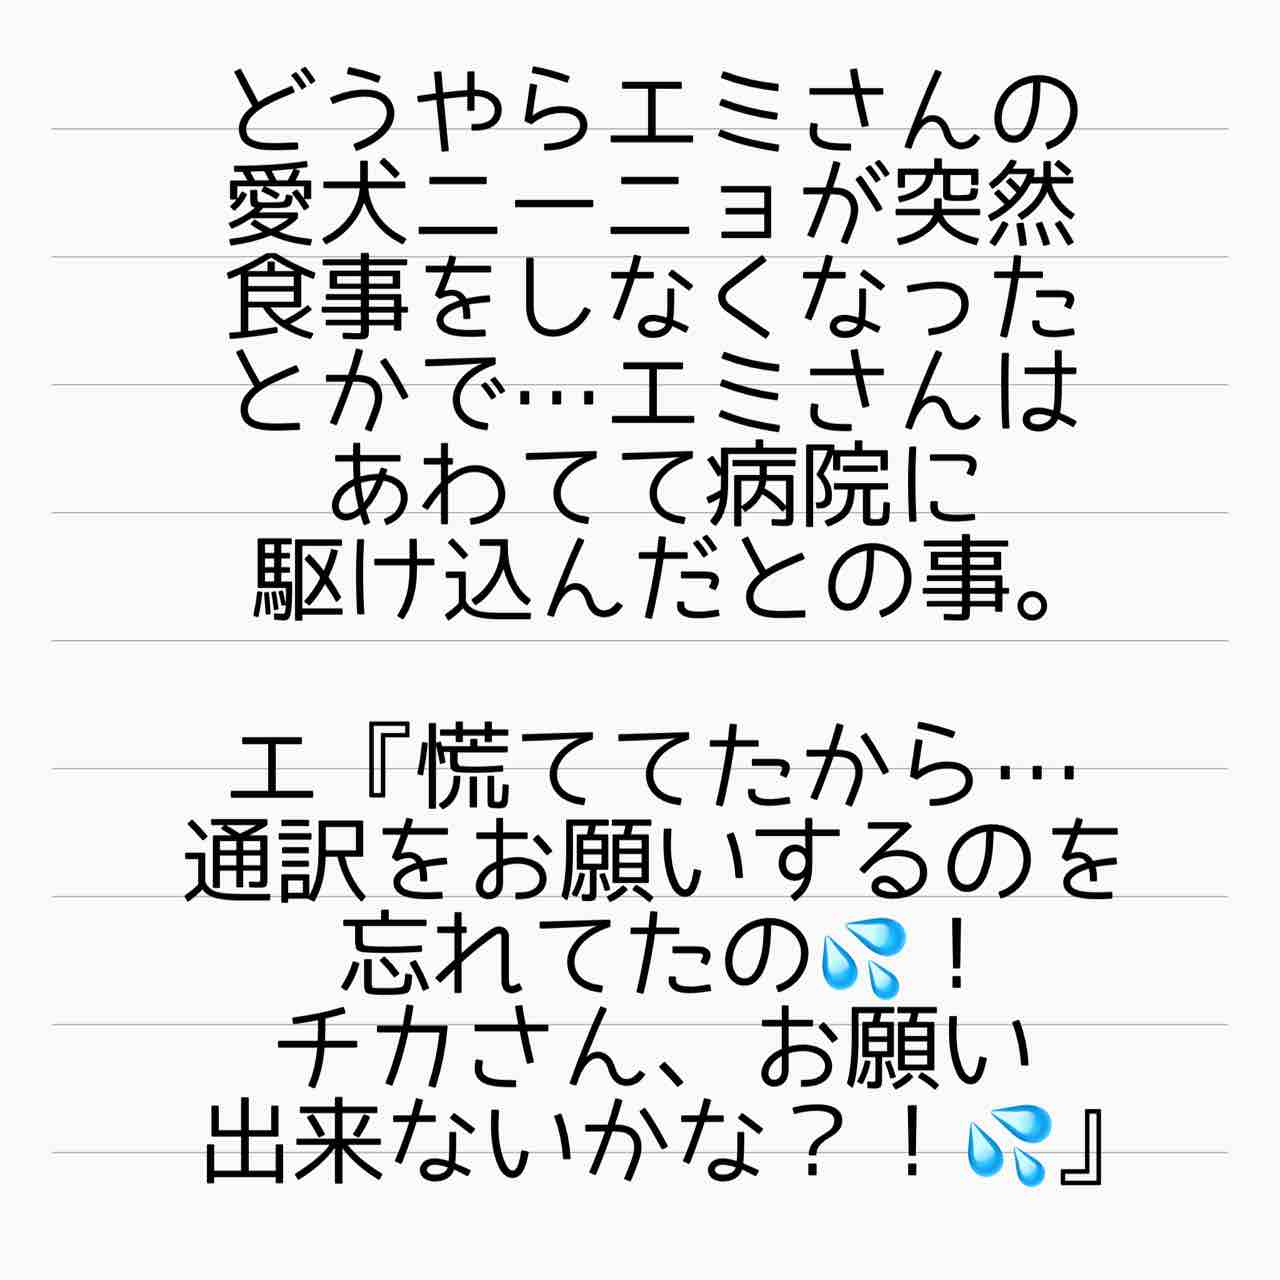 どうやらエミさんの
愛犬ニーニョが突然
食事をしなくなった
とかで…エミさんは
あわてて病院に
駆け込んだとの事。
エ『慌ててたから…
通訳をお願いするのを
忘れてたの💦！
チカさん、お願い
出来ないかな？！💦』